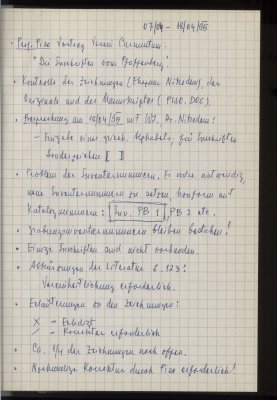 07/04 - 18/04/95
• Prof. Piso Vortrag Verein Carnuntum:
"Die Inschriften vom Pfaffenberg".
• Kontrolle der Zeichnungen (Ehepaar Nikodem), der
Originale und des Manuskriptes (PISO.DOC).
• Besprechung am 18/04/95 mit WJ, Dr. Nikodem:
- Eingabe eines griech. Alphabets, für Inschriften
Sonderzeichen [ ]
• Problem der Inventarnummern. Es wäre notwendig,
neue Inventarnummern zu setzen, konform mit
Katalognummern: Inv. PB 1, PB 2 etc.
• Grabungsinventarnummern bleiben bestehen!
• Einige Inschriften sind nicht vorhanden.
• Abkürzungen der Literatur S. 123!
Vereinheitlichung erforderlich.
• Erläuterungen zu den Zeichnungen:
X = Erledigt
/ = Korrektur erforderlich
• Ca. 1/4 der Zeichnungen noch offen.
• Nochmalige Korrektur durch Piso erforderlich!